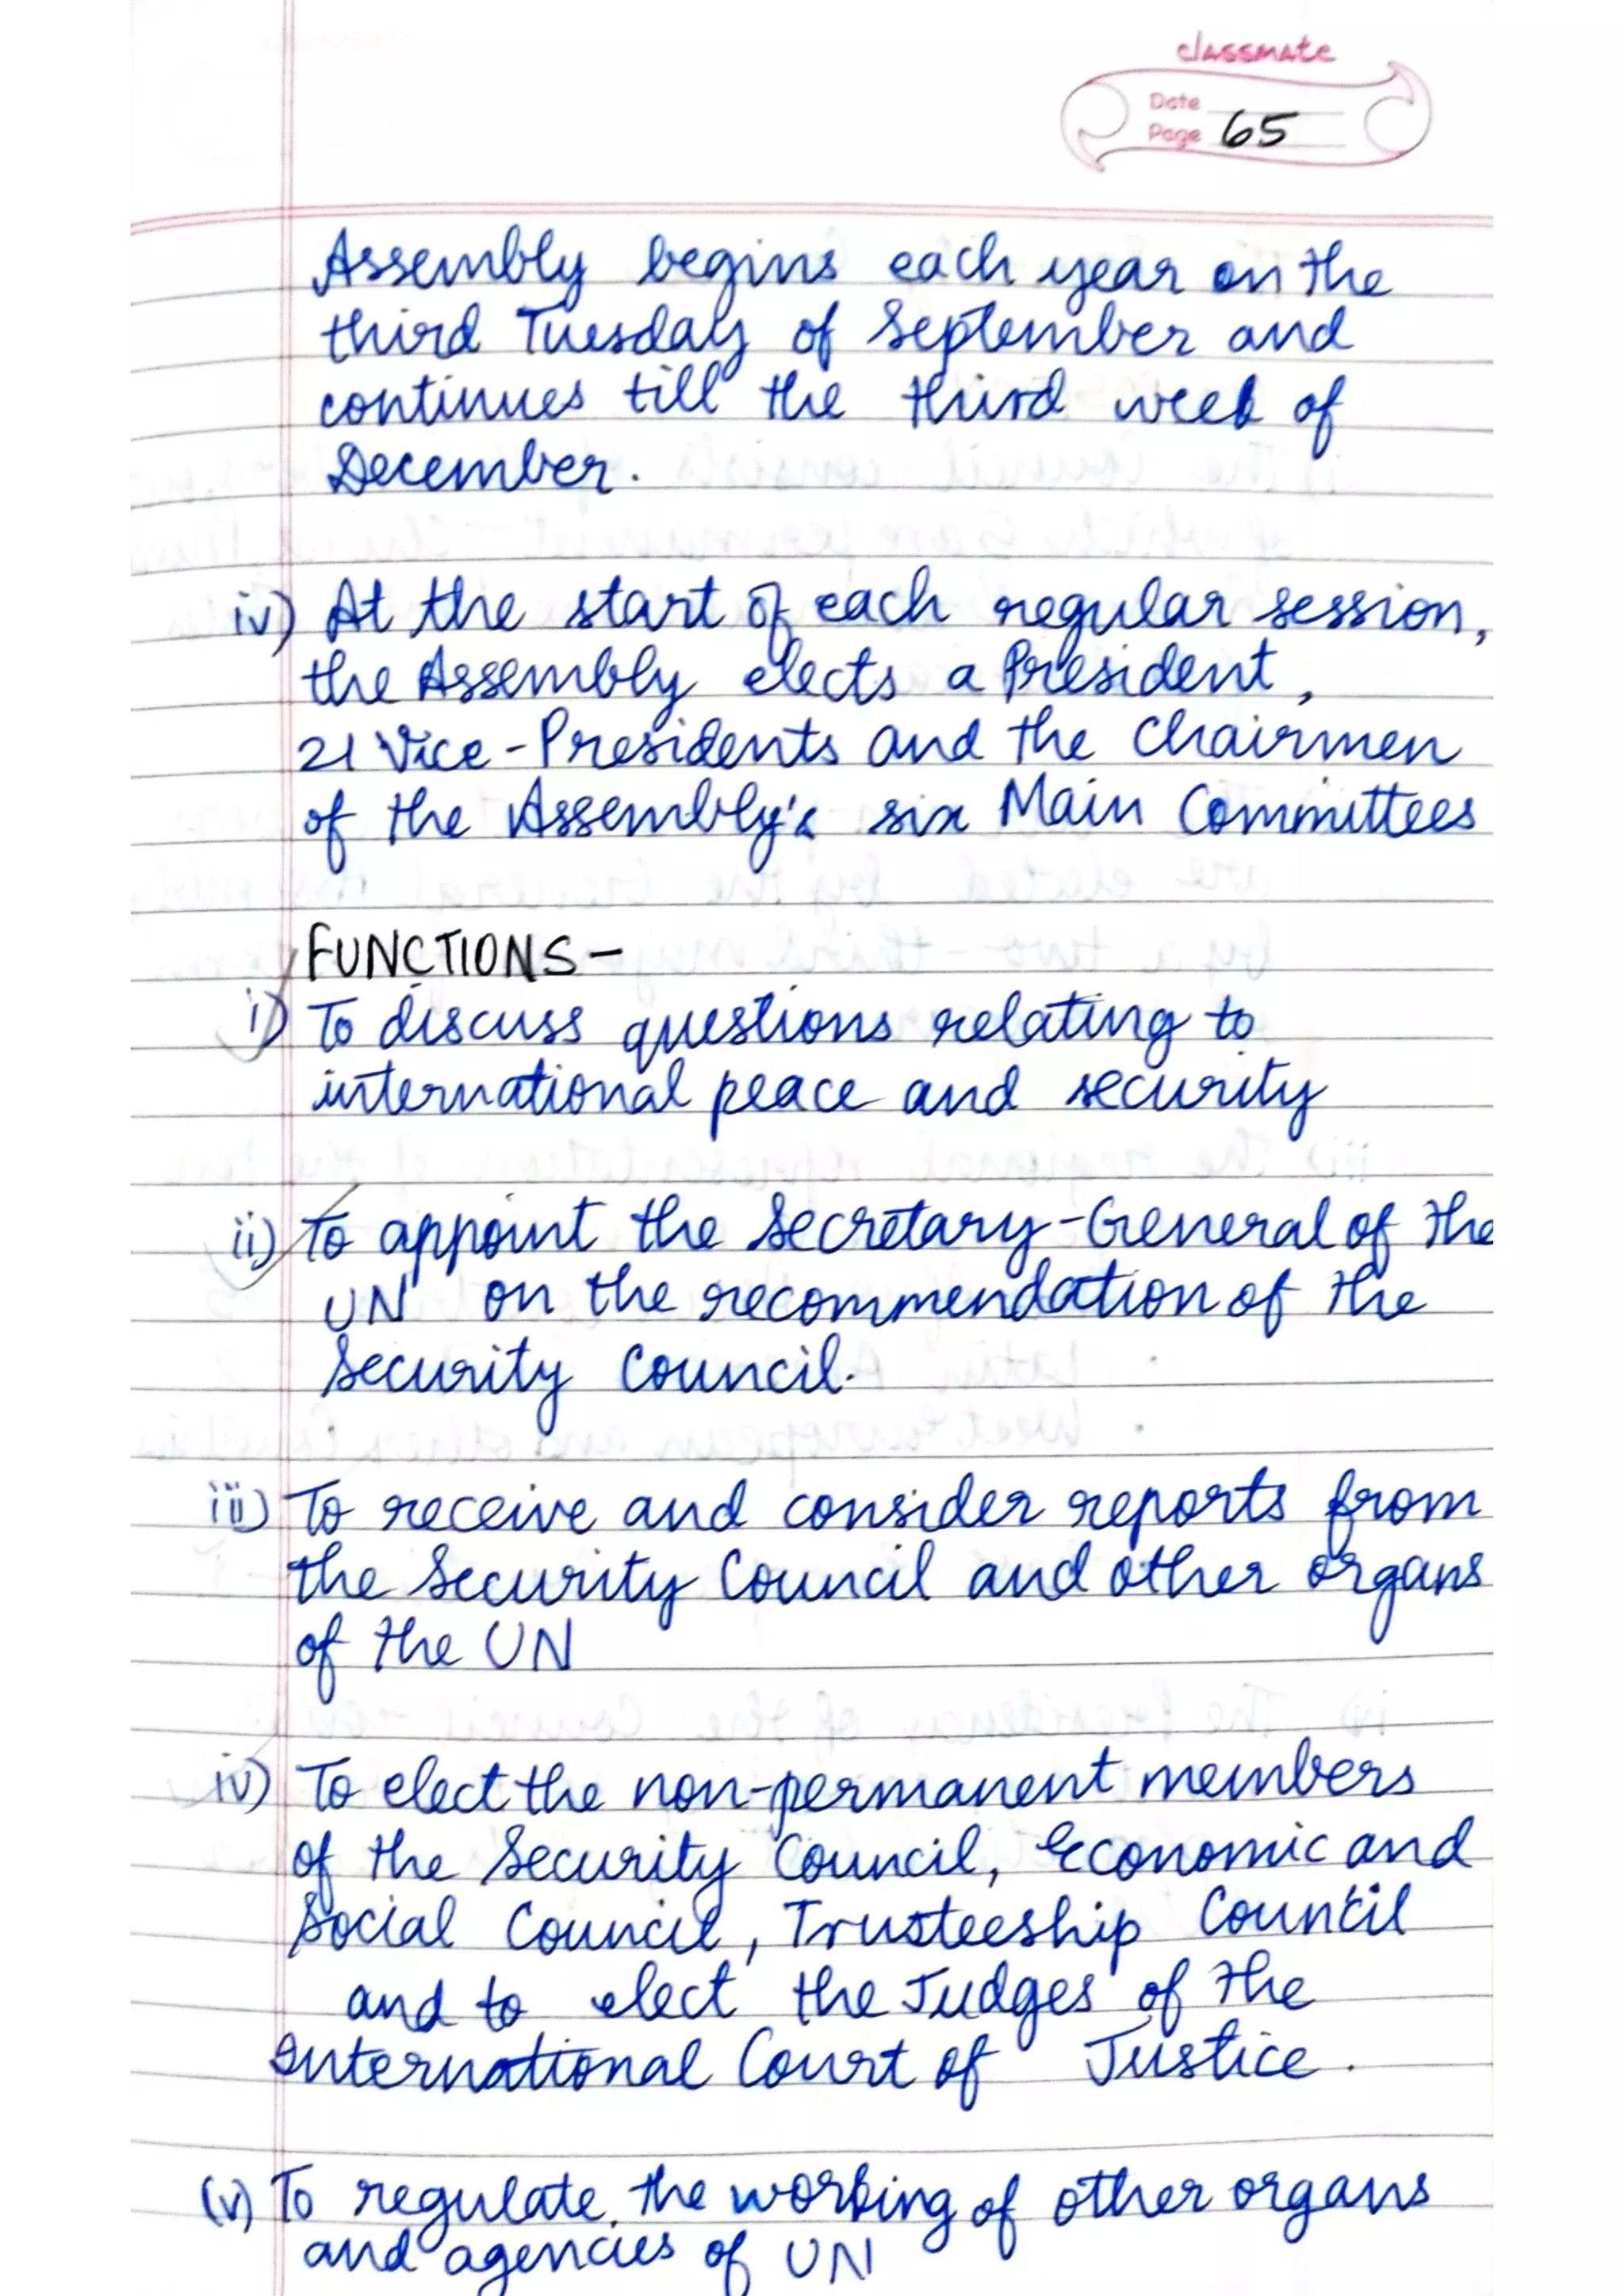 classmate
Date
Page 65
Assembly begins each year on the
third Tuesday of September and
continues till the third week of
December.
iv) At the start of each regular session,
the Assembly elects a President,
21 Vice-Presidents and the Chairmen
of the Assembly's six Main Committees
FUNCTIONS-
i) To discuss questions relating to
international peace and security
ii) To appoint the Secretary-General of the
UN on the recommendation of the
Security Council.
iii) To receive and consider reports from
the Security Council and other organs
of the UN
iv) To elect the non-permanent members
of the Security Council, Economic and
Social Council, Trusteeship Council
and to elect the Judges of the
International Court of Justice.
(v) To regulate the working of other organs
and agencies of UN